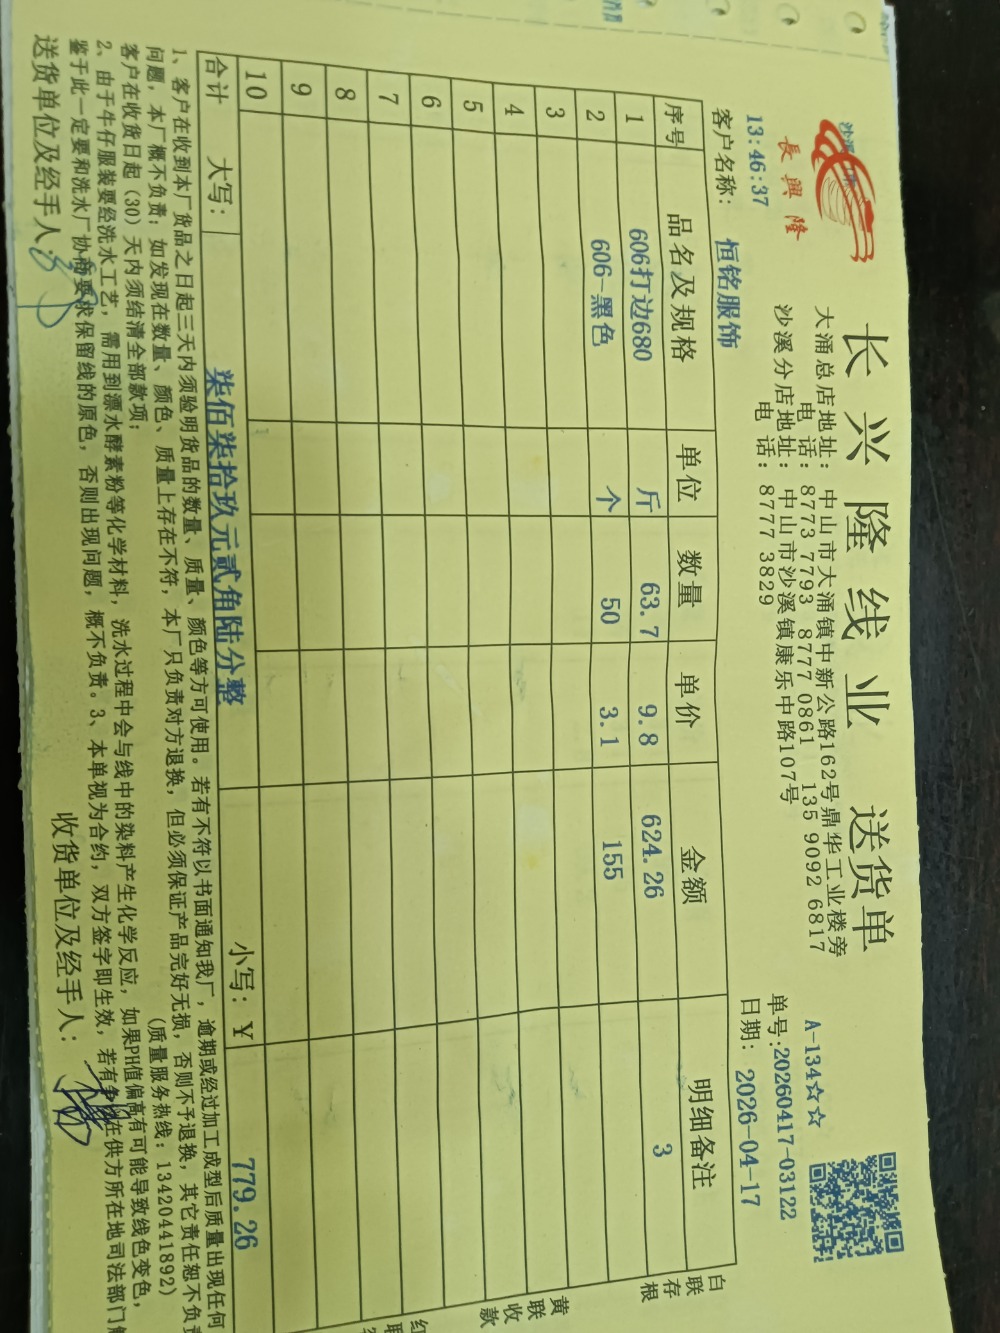 長興隆
长兴隆线业 送货单
大涌总店地址：中山市大涌镇中新公路162号鼎华工业楼旁
电话：8773 7793 8777 0861 135 9092 6817
沙溪分店地址：中山市沙溪镇康乐中路107号
电话：8777 3829
A-134☆☆
单号:20260417-03122
13:46:37
日期：2026-04-17
客户名称：恒铭服饰
序号 品名及规格 单位 数量 单价 金额 明细备注
1 606打边680 斤 63.7 9.8 624.26 3
2 606-黑色 个 50 3.1 155
3
4
5
6
7
8
9
10
合计 大写：柒佰柒拾玖元贰角陆分整 小写：¥ 779.26
白联存根
黄联收款
红联
1、客户在收到本厂货品之日起三天内须验明货品的数量、质量、颜色等方可使用。若有不符以书面通知我厂，逾期或经过加工成型后质量出现任何
问题，本厂概不负责；如发现在数量、颜色、质量上存在不符，本厂只负责对方退换，但必须保证产品完好无损，否则不予退换，其它责任恕不负责
客户在收货日起（30）天内须结清全部款项；
(质量服务热线：13420441892)
2、由于牛仔服装要经洗水工艺，需用到漂水酵素粉等化学材料，洗水过程中会与线中的染料产生化学反应，如果PH值偏高有可能导致线色变色，
鉴于此一定要和洗水厂协商要求保留线的原色，否则出现问题，概不负责。3、本单视为合约，双方签字即生效，若有争 在供方所在地司法部门
送货单位及经手人：
收货单位及经手人：